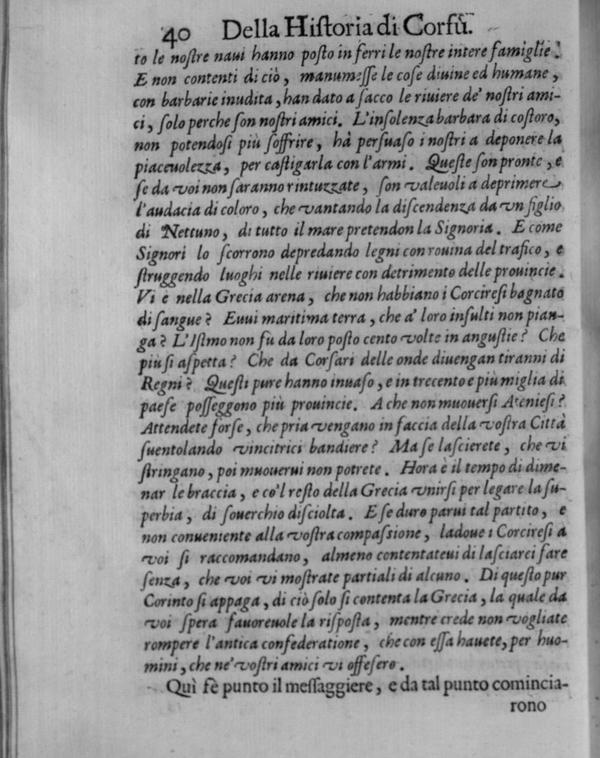 40 Della Hiſtoria di Corfù.
to le noſtre naui hanno poſto in ferri le noſtre intere famiglie.
E non contenti di ciò, manumeſſe le coſe diuine ed humane,
con barbarie inudita, han dato a ſacco le riuiere de' noſtri ami-
ci, ſolo perche ſon noſtri amici. L'inſolenza barbara di coſtoro,
non potendoſi più ſoffrire, hà perſuaſo i noſtri a deponere la
piaceuolezza, per caſtigarla con l'armi. Queſte ſon pronte, e
ſe da voi non ſaranno rintuzzate, ſon valeuoli a deprimere
l'audacia di coloro, che vantando la diſcendenza da vn figlio
di Nettuno, di tutto il mare pretendon la Signoria. E come
Signori lo ſcorrono depredando legni con rouina del trafico, e
ſtruggendo luoghi nelle riuiere con detrimento delle prouincie.
Vi è nella Grecia arena, che non habbiano i Corcireſi bagnato
di ſangue? Euui maritima terra, che a' loro inſulti non pian-
ga? L'Iſtmo non fù da loro poſto cento volte in anguſtie? Che
più ſi aſpetta? Che da Corſari delle onde diuengan tiranni di
Regni? Queſti pure hanno inuaſo, e in trecento e più miglia di
paeſe poſſeggono più prouincie. A che non muouerſi Atenieſi?
Attendete forſe, che pria vengano in faccia della voſtra Città
ſuentolando vincitrici bandiere? Ma ſe laſcierete, che vi
ſtringano, poi muouerui non potrete. Hora è il tempo di dime-
nar le braccia, e co'l reſto della Grecia vnirſi per legare la ſu-
perbia, di ſouerchio diſciolta. E ſe duro parui tal partito, e
non conueniente alla voſtra compaſſione, ladoue i Corcireſi a
voi ſi raccomandano, almeno contentateui di laſciarci fare
ſenza, che voi vi moſtrate partiali di alcuno. Di queſto pur
Corinto ſi appaga, di ciò ſolo ſi contenta la Grecia, la quale da
voi ſpera fauoreuole la riſpoſta, mentre crede non vogliate
rompere l'antica confederatione, che con eſſa hauete, per huo-
mini, che ne' voſtri amici vi offeſero.
Quì fè punto il meſſaggiere, e da tal punto comincia-
rono